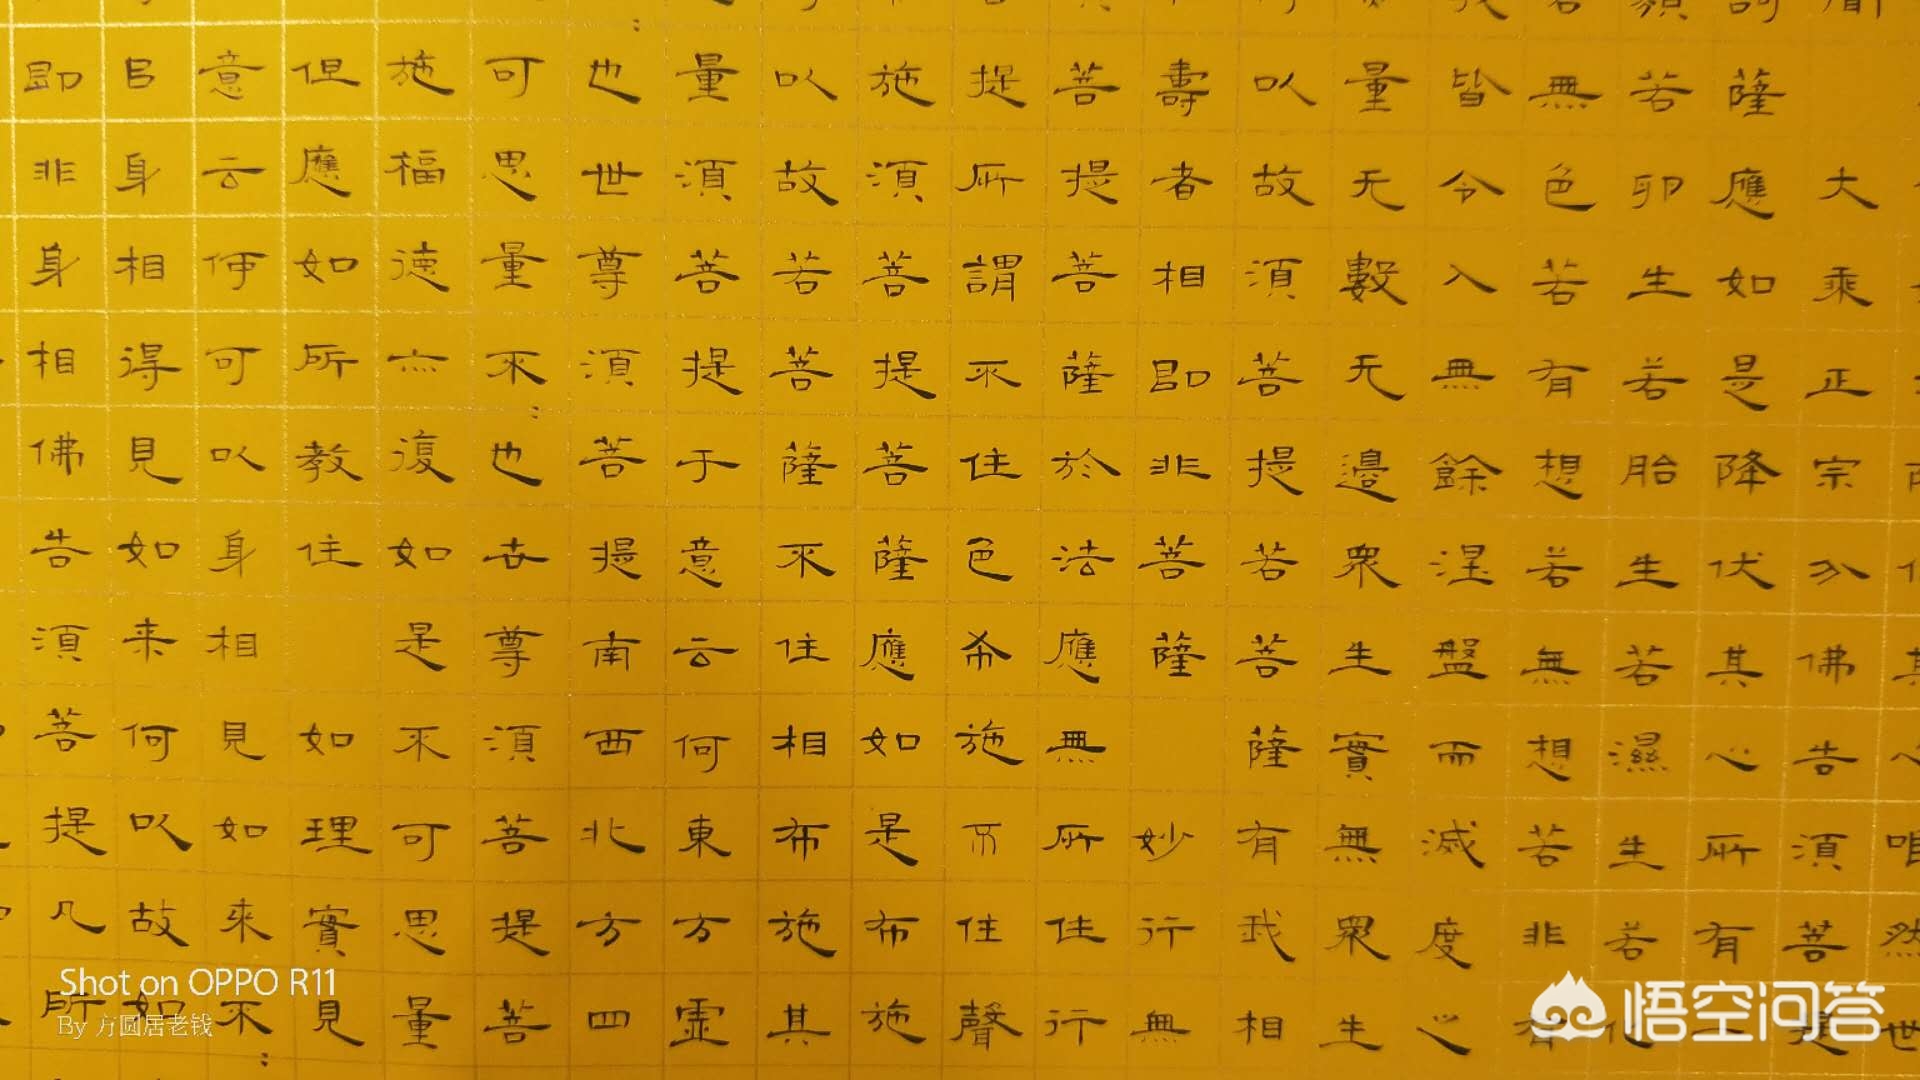 然世
大乘正宗分佛告須菩提
薩應如是降伏其心所有一
若卵生若胎生若濕生若化
無色若有想若無想若非有
皆令入無餘涅盤而滅度之
量无數无邊眾生實無眾生
以故須菩提若菩薩有我相
壽者相即非菩薩 妙行無
菩提菩薩於法應無所住行
提所謂不住色布施不住聲
施須菩提菩薩應如是布施
以故若菩薩不住相布施其
量須菩提于意云何東方虛
也世尊須菩提南西北方四
可思量不也世尊須菩提菩
施福德亦復如是不可思量
但應如所教住 如理實見
意云何可以身相見如來不
㠯身相得見如来何以故如
即非身相佛告須菩提凡所
Shot on OPPO R11
By 方圆居老钱
悟空问答